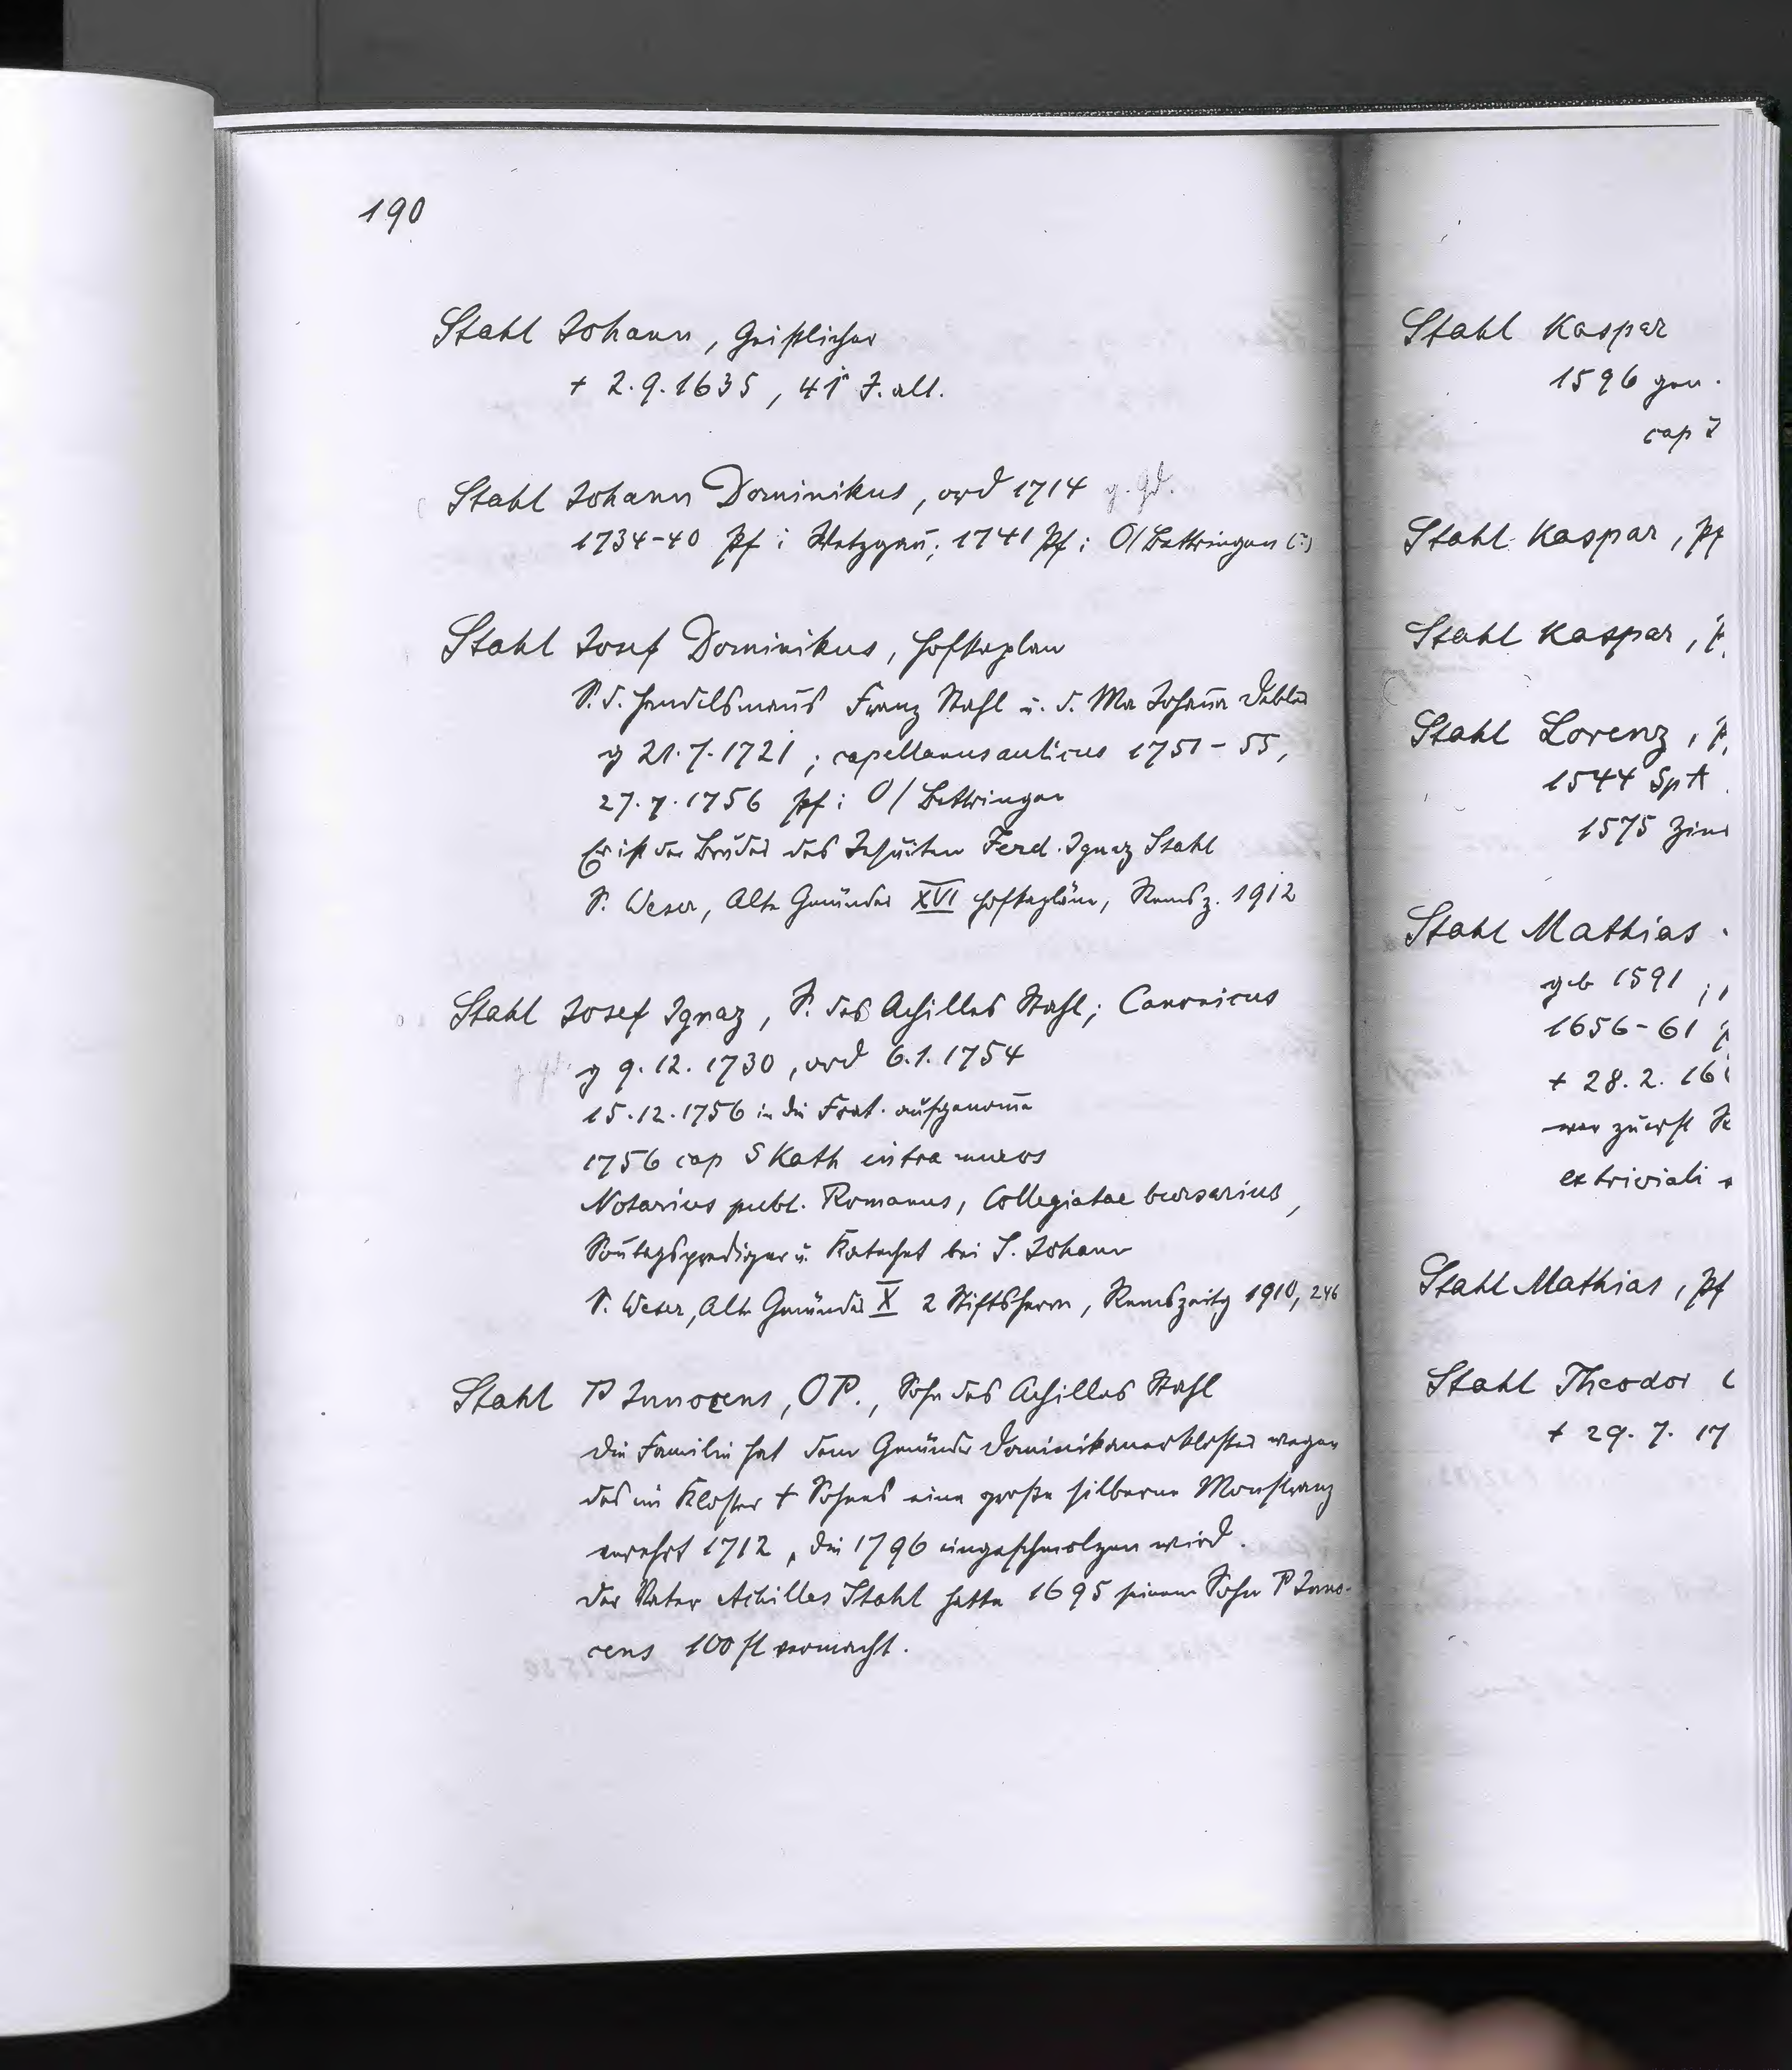 190
Stahl Johann, Geistlicher
+ 2.9.1635, 41 J. alt.
Stahl Johann Dominikus, ord 1714 g. Gd.
1734-40 Pf i Wetzgau; 1741 Pf i O/Bettringen (?)
Stahl Josef Dominikus, Hofkaplan
S. d. Handelsmanns Franz Stahl u. d. Ma Johanna Debler
g 21.7.1721; capellanus aulicus 1751-55,
27.7.1756 Pf i O/Bettringen
Er ist der Bruder des Jesuiten Ferd. Ignaz Stahl
S. Weser, Alte Gmünder XVI Hofkapläne, Remsz. 1912
Stahl Josef Ignaz, S. des Achilles Stahl; Canonicus
g. Gd. g 9.12.1730, ord 6.1.1754
15.12.1756 in die Frat. aufgenomen
1756 cap S Kath intra muros
Notarius publ. Romanus, Collegiatae bursarius,
Sontagsprediger u. Katechet bei S. Johann
S. Weser, Alte Gmünder X 2 Stiftsherrn, Remszeitg 1910, 246
Stahl P Innocens, OP., Sohn des Achilles Stahl
Die Familie hat dem Gmünder Dominikanerkloster wegen
des im Kloster + Sohnes eine große silberne Monstranz
verehrt 1712, die 1796 eingeschmolzen wird.
Der Vater Achilles Stahl hatte 1695 seinem Sohn P Inno-
cens 100 fl vermacht.
Stahl Kaspar
1596 gen.
cap
Stahl Kaspar, Pf
Stahl Kaspar,
Stahl Lorenz,
1544 Sp A
1575
Stahl Mathias
geb 1591;
1656-61
+ 28.2. 16
war zuerst
ex triviali
Stahl Mathias, Pf
Stahl Theodor
+ 29.7. 17